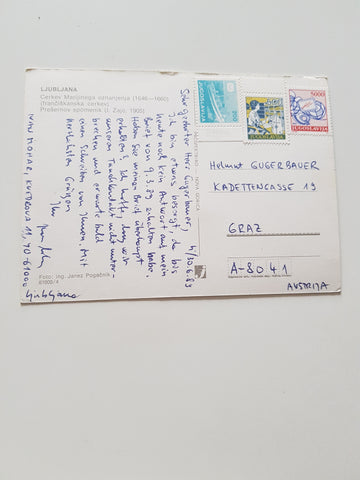 LJUBLJANA
Cerkev Marijinega oznanjenja (1646–1660)
(frančiškanska cerkev)
Prešernov spomenik (I. Zajc, 1905)
Lj 30.6.89
Sehr geehrter Herr Gugerbauer,
ich bin etwas besorgt, da bis
heute noch kein Antwort auf mein
Brief von 9.3.89 erhalten habe.
Haben Sie meinen Brief überhaupt
erhalten? Ich hoffe, dass wir
unseren Tauschkontakt nicht unter-
brechen und erwarte bald
einen Schreiben von Ihnen. Mit
herzlichsten Grüssen
Ihr
IVAN MOHAR, KVEDROVA 11, YU-61000
Ljubljana
Foto: ing. Janez Pogačnik
61000/4
JUGOSLAVIJA
JUGOSLAVIJA
5000
JUGOSLAVIJA
Helmut GUGERBAUER
KADETTENGASSE 19
GRAZ
A-8041
AUSTRIJA